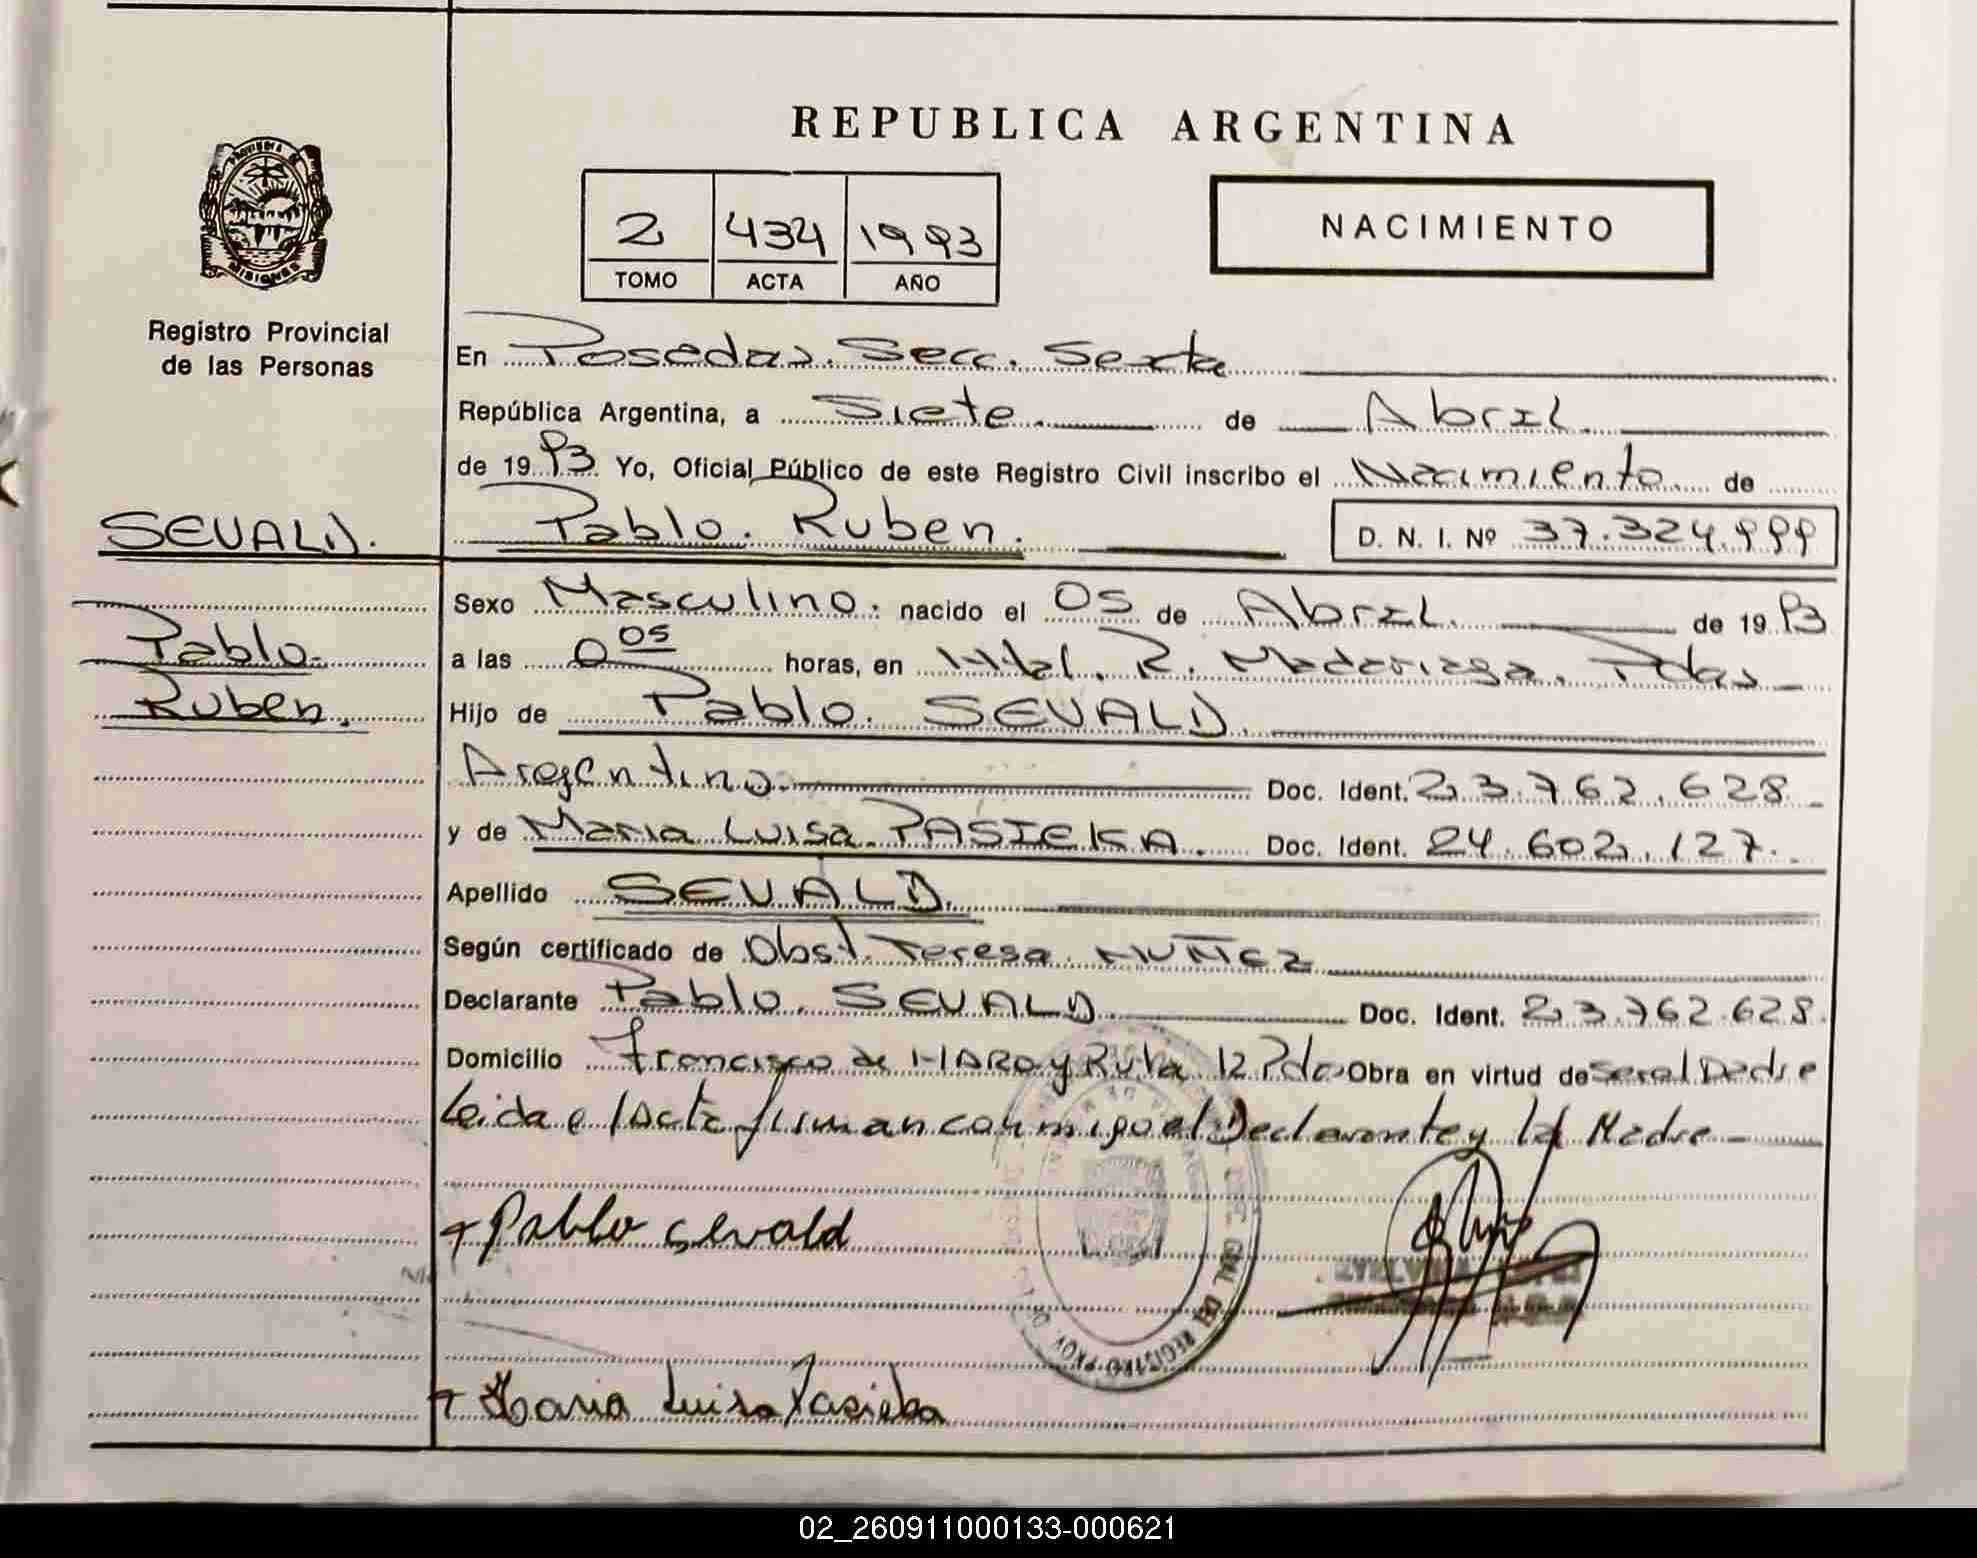 REPUBLICA ARGENTINA
PROVINCIA DE
MISIONES
2 434 1993
TOMO ACTA AÑO
NACIMIENTO
Registro Provincial
de las Personas
En Posadas. Secc. Sexta
República Argentina, a Siete. de Abril.
de 1993 Yo, Oficial Público de este Registro Civil inscribo el Nacimiento de
SEVALD.
Pablo. Ruben. D. N. I. Nº 37.324.999
Sexo Masculino. nacido el 05 de Abril. de 1993
Pablo.
a las 0 05 horas, en Htal. R. Madariaga. Pdas
Ruben.
Hijo de Pablo. SEVALD.
Argentino. Doc. Ident. 23.762.628
y de Maria Luisa. PASIEKA. Doc. Ident. 24.602.127.
Apellido SEVALD.
Según certificado de Obst. Teresa. MUÑEZ
Declarante Pablo. SEVALD Doc. Ident. 23.762.628.
Domicilio Francisco de HARO y Ruta 12 Pdas Obra en virtud de Ser el Padre
Leida el Acta firman conmigo el Declarante y la Madre
+ Pablo Sevald
+ Maria Luisa Pasieka
02_260911000133-000621